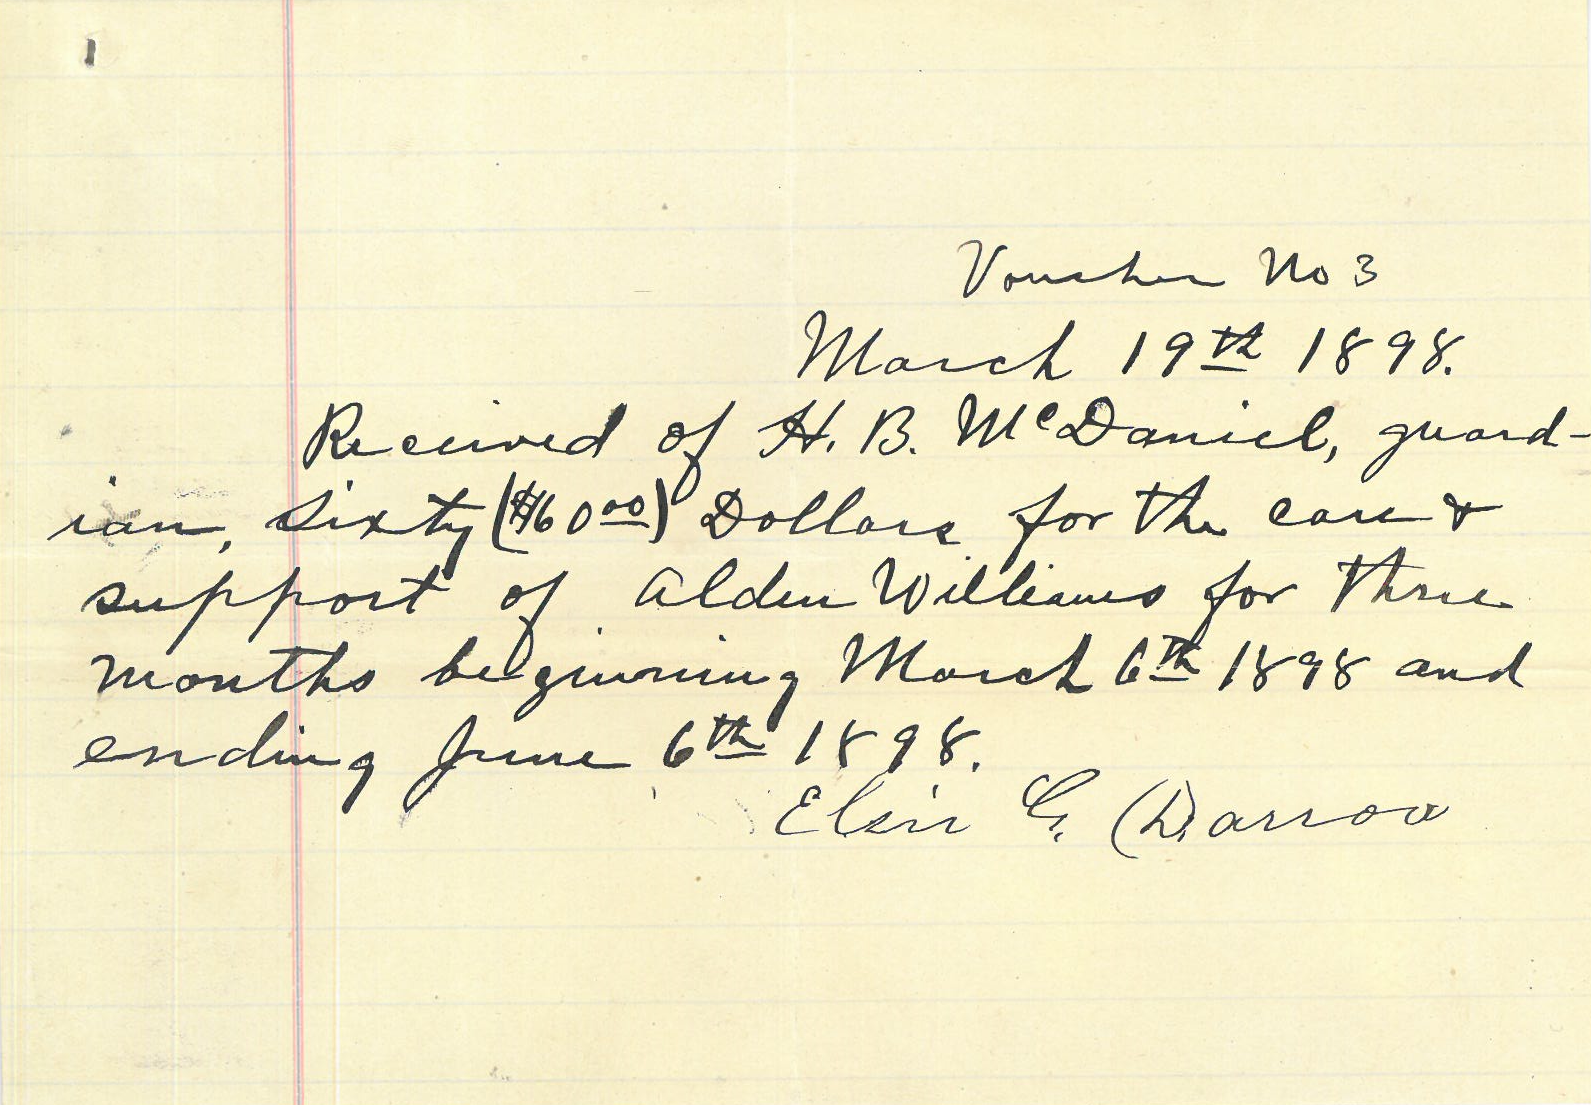 Voucher No 3
March 19th 1898.
Received of H. B. McDaniel, guard-
ian, sixty ($60.00) Dollars for the care &
support of Alden Williams for three
months beginning March 6th 1898 and
ending June 6th 1898.
G. Darrow